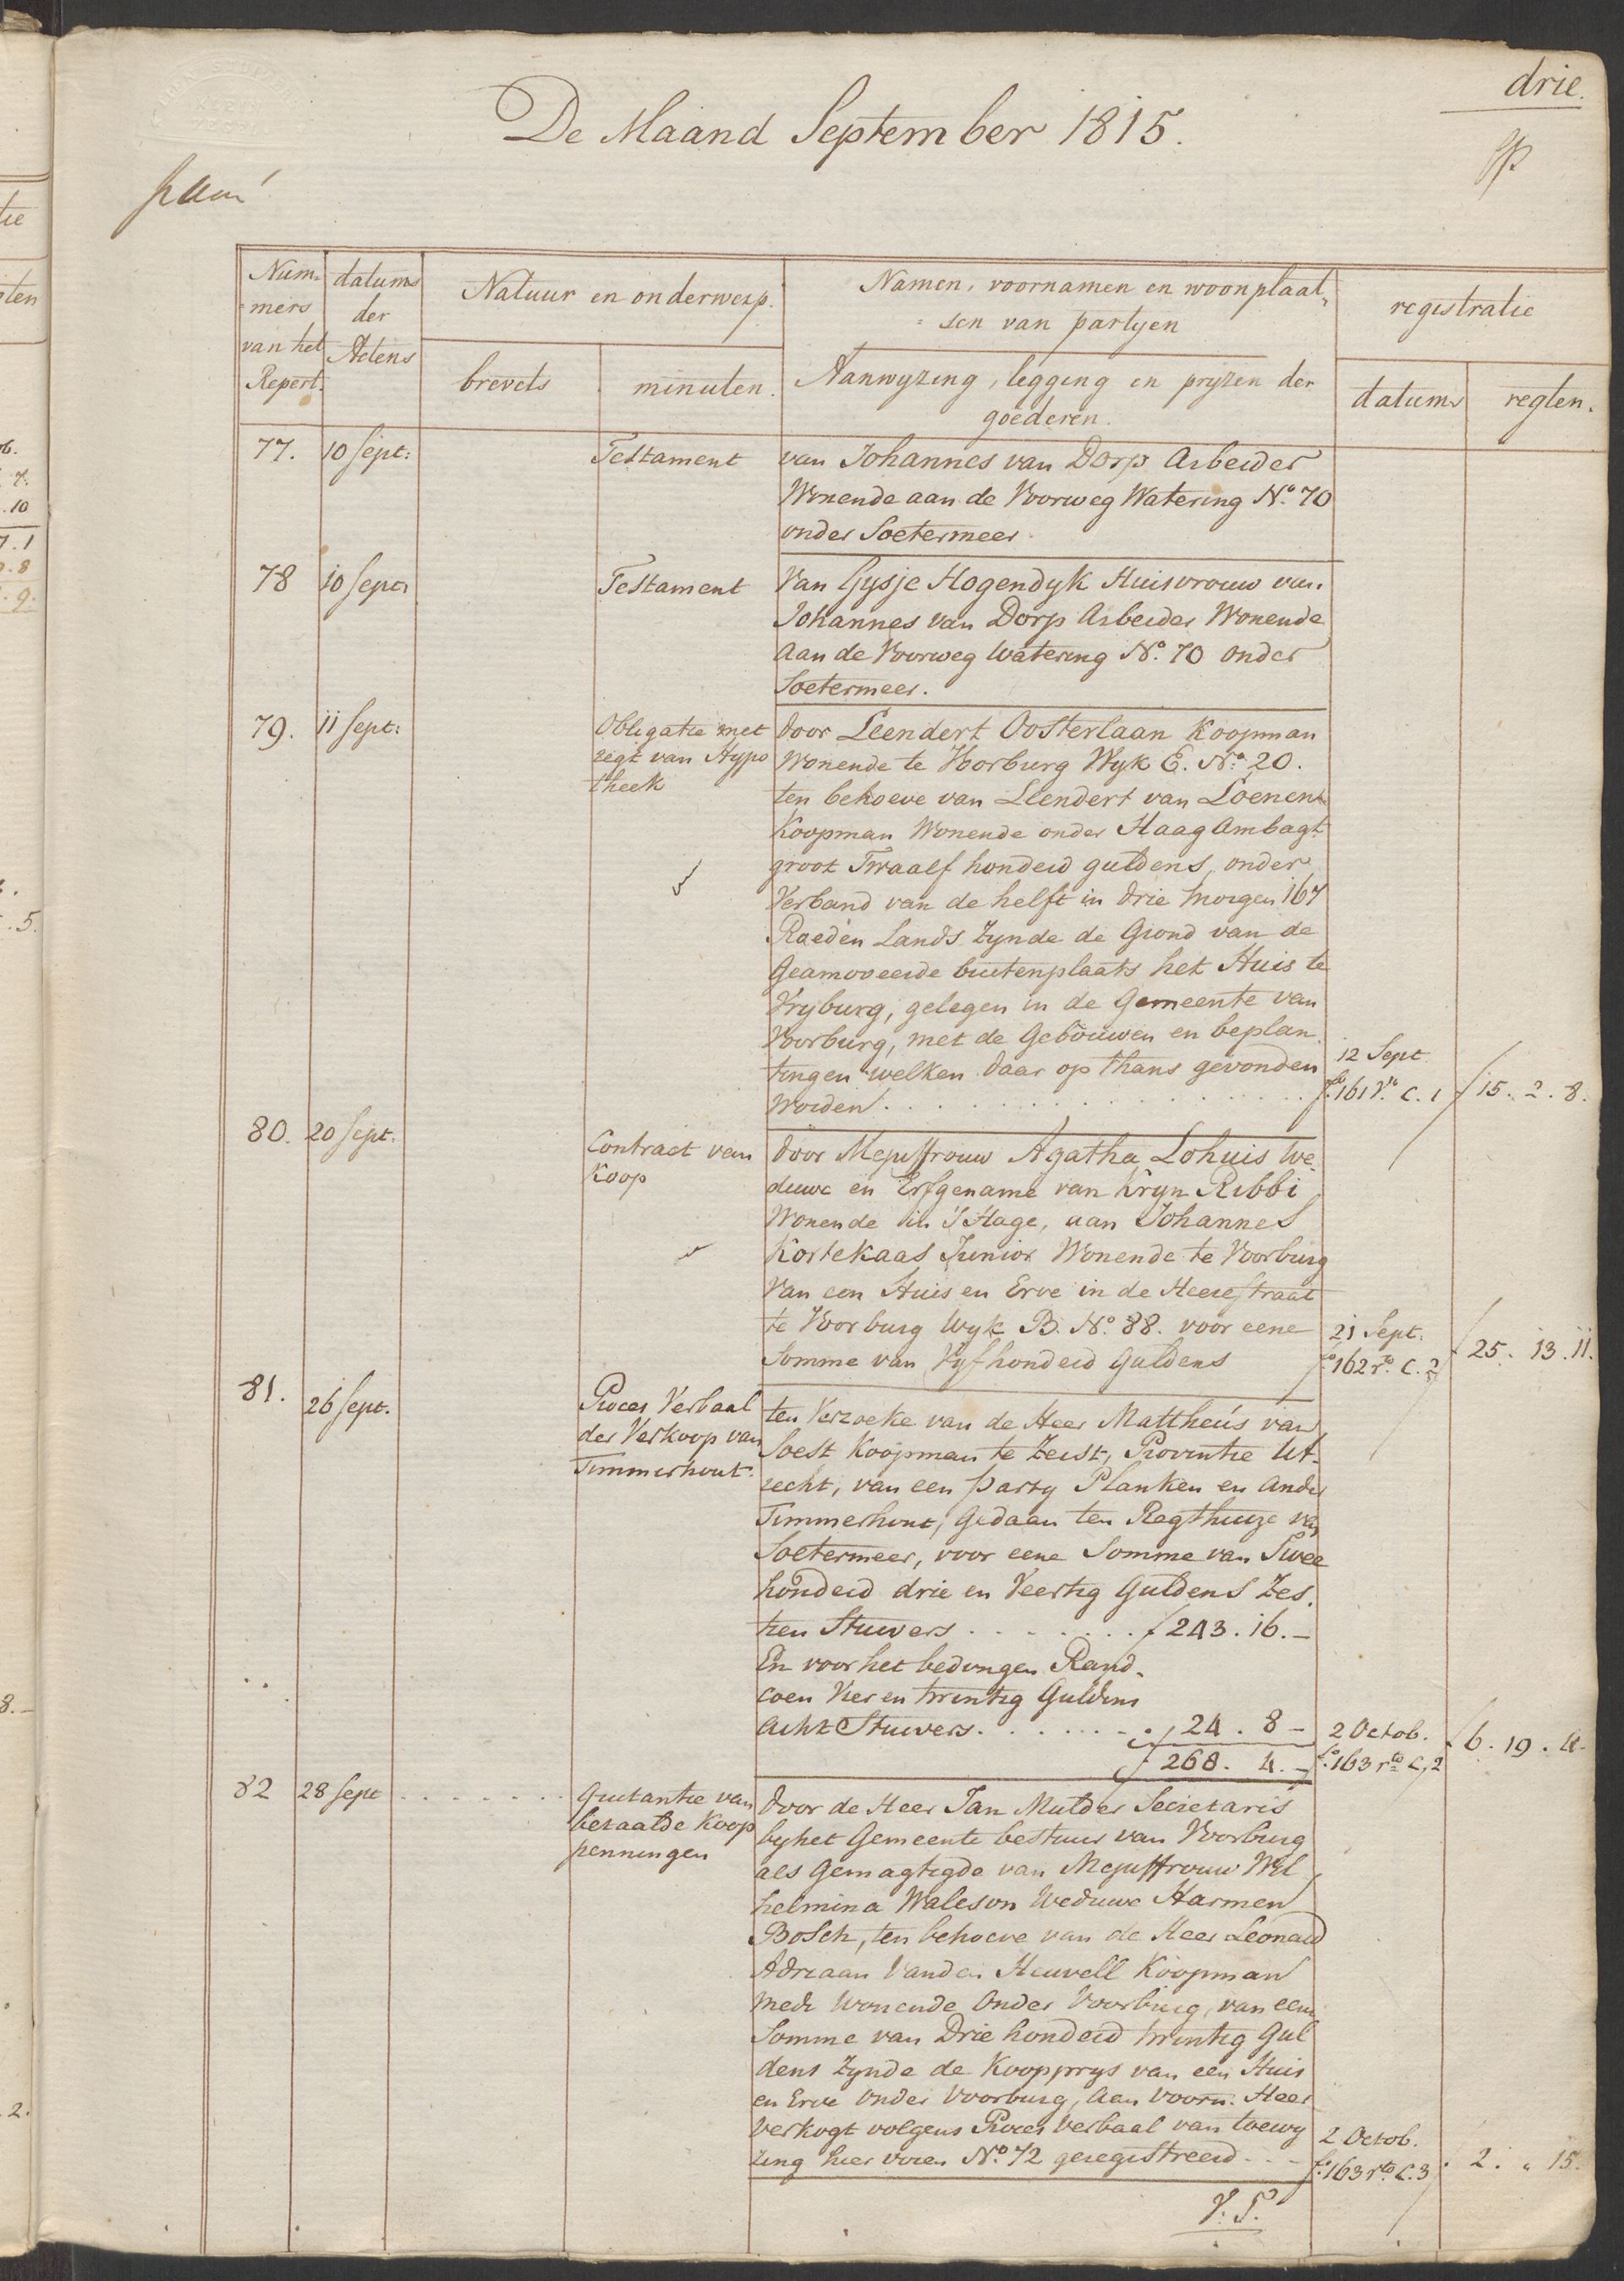 drie.
De Maand September 1815.
Num=
=mers
van het
Repert.
datums
der
Actens
Natuur en onderwerp.
brevets
minuten.
Namen, voornamen en woonplaat,
= sen van partyen
Aanwyzing, legging en pryzen der
goederen.
registratie
datums
regten.
77. 10 Sept: Testament van Johannes van Dorp Arbeider
Wonende aan de Voorweg Watering No. 70
onder Soetermeer.
78 10 Sept: Testament Van Gysje Hogendyk Huisvrouw van
Johannes van Dorp Arbeider Wonende
aan de Voorweg Watering No. 70 onder
Soetermeer.
79. 11 Sept: Obligatie met door Leendert Oosterlaan Koopman
regt van Hypo Wonende te Voorburg Wyk E. No. 20.
theek ten behoeve van Leendert van Loenen
Koopman Wonende onder Haag Ambagt
groot Twaalf honderd guldens, onder
Verband van de helft in drie morgen 167
Roeden Lands Zynde de Grond van de
Geamoveerde buitenplaats het Huis te
Vryburg, gelegen in de Gemeente van
Voorburg, met de Gebouwen en beplan
tingen welken daar op thans gevonden 12 Sept.
Worden . . . . . . . . fo. 161 Vo. C. 1 15. 2. 8.
80. 20 Sept. Contract van door Mejuffrouw Agatha Lohuis We
Koop duwe en Erfgename van Kryn Ribbi
Wonende in 's Hage, aan Johannes
Kortekaas Junior Wonende te Voorburg
Van een Huis en Erve in de Heerestraat
te Voorburg Wyk B. No. 88. voor eene 21 Sept.
Somme van Vyf honderd Guldens fo. 162 ro. C. 2 25. 13. 11.
81. 26 Sept. Proces Verbaal ten Verzoeke van de Heer Mattheus van
der Verkoop van Soest Koopman te Zeist, Provintie Ut-
Timmerhout. recht, van een party Planken en ander
Timmerhout, Gedaan ten Regthuize van
Soetermeer, voor eene Somme van Twee
honderd drie en Veertig Guldens Zes.
tien Stuivers . . . . . . . f 243. 16. –
En voor het bedongen Rand-
coen Vier en twintig Guldens
Acht Stuivers . . . . . . . 24. 8 – 2 Octob. 6. 19. 4.
f 268. 4. – fo. 163 ro. C. 2
82 28 Sept . . . . . . . Quitantie van door de Heer Jan Mulder Secretaris
betaalde Koop by het Gemeente bestuur van Voorburg
penningen als Gemagtigde van Mejuffrouw Wil
helmina Waleson Weduwe Harmen
Bosch, ten behoeve van de Heer Leonard
Adriaan Vanden Heuvell Koopman
mede wonende Onder Voorburg, van eene
Somme van Drie honderd twintig Gul
dens Zynde de Koopprys van een Huis
en Erve Onder Voorburg, aan Voorn. Heer
verkogt volgens Proces Verbaal van toewy 2 Octob.
zing hier voren No. 72 geregistreerd . . – fo. 163 ro. C. 3 2. „ 15.
V. S.